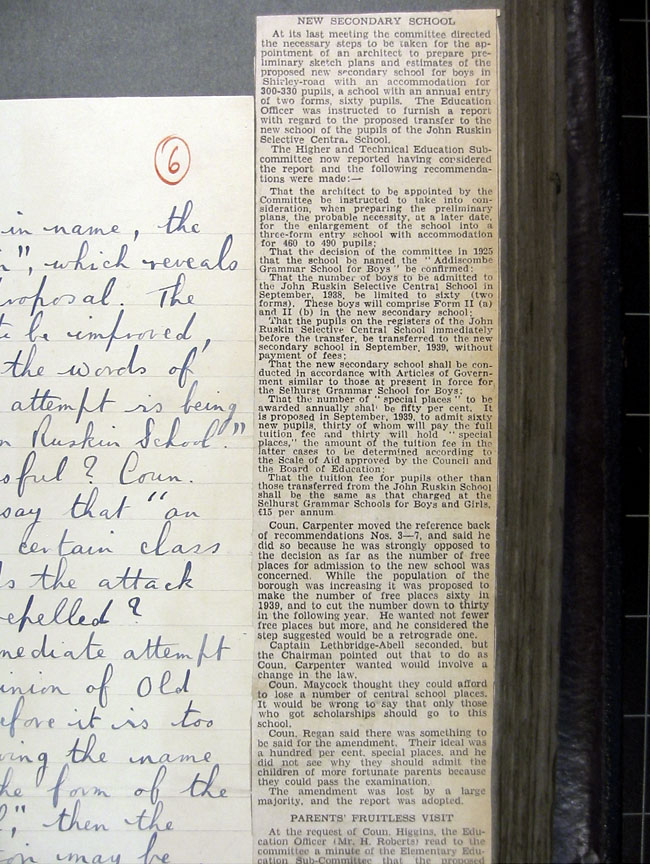 6
in name, the
", which reveals
proposal. The
to be improved,
the words of
attempt is being
n Ruskin School."
sful? Coun.
say that "an
certain class
Is the attack
repelled?
mediate attempt
inion of Old
efore it is too
ving the name
the form of the
", then the
may be
NEW SECONDARY SCHOOL
At its last meeting the committee directed
the necessary steps to be taken for the ap-
pointment of an architect to prepare pre-
liminary sketch plans and estimates of the
proposed new secondary school for boys in
Shirley-road with an accommodation for
300-330 pupils, a school with an annual entry
of two forms, sixty pupils. The Education
Officer was instructed to furnish a report
with regard to the proposed transfer to the
new school of the pupils of the John Ruskin
Selective Central School.
The Higher and Technical Education Sub-
committee now reported having considered
the report and the following recommenda-
tions were made:—
That the architect to be appointed by the
Committee be instructed to take into con-
sideration, when preparing the preliminary
plans, the probable necessity, at a later date,
for the enlargement of the school into a
three-form entry school with accommodation
for 460 to 490 pupils;
That the decision of the committee in 1925
that the school be named the "Addiscombe
Grammar School for Boys" be confirmed;
That the number of boys to be admitted to
the John Ruskin Selective Central School in
September, 1938, be limited to sixty (two
forms). These boys will comprise Form II (a)
and II (b) in the new secondary school;
That the pupils on the registers of the John
Ruskin Selective Central School immediately
before the transfer, be transferred to the new
secondary school in September, 1939, without
payment of fees;
That the new secondary school shall be con-
ducted in accordance with Articles of Govern-
ment similar to those at present in force for
the Selhurst Grammar School for Boys;
That the number of "special places" to be
awarded annually shall be fifty per cent. It
is proposed in September, 1939, to admit sixty
new pupils, thirty of whom will pay the full
tuition fee and thirty will hold "special
places," the amount of the tuition fee in the
latter cases to be determined according to
the Scale of Aid approved by the Council and
the Board of Education;
That the tuition fee for pupils other than
those transferred from the John Ruskin School
shall be the same as that charged at the
Selhurst Grammar Schools for Boys and Girls,
£15 per annum
Coun. Carpenter moved the reference back
of recommendations Nos. 3—7, and said he
did so because he was strongly opposed to
the decision as far as the number of free
places for admission to the new school was
concerned. While the population of the
borough was increasing it was proposed to
make the number of free places sixty in
1939, and to cut the number down to thirty
in the following year. He wanted not fewer
free places but more, and he considered the
step suggested would be a retrograde one.
Captain Lethbridge-Abell seconded, but
the Chairman pointed out that to do as
Coun. Carpenter wanted would involve a
change in the law.
Coun. Maycock thought they could afford
to lose a number of central school places.
It would be wrong to say that only those
who got scholarships should go to this
school.
Coun. Regan said there was something to
be said for the amendment. Their ideal was
a hundred per cent. special places, and he
did not see why they should admit the
children of more fortunate parents because
they could pass the examination.
The amendment was lost by a large
majority, and the report was adopted.
PARENTS' FRUITLESS VISIT
At the request of Coun. Higgins, the Edu-
cation Officer (Mr. H. Roberts) read to the
committee a minute of the Elementary Edu-
cation Sub-Committee that the proposed